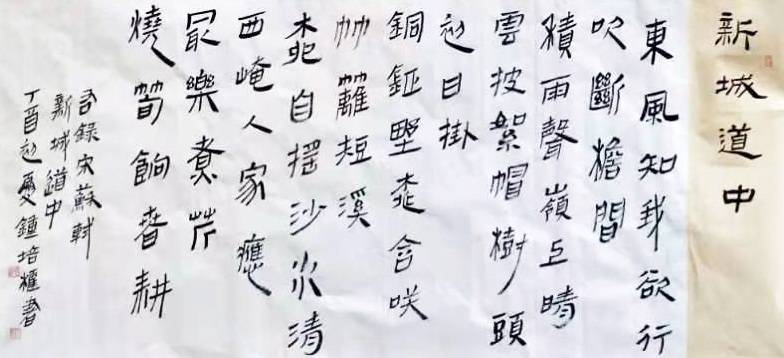 新城道中
東風知我欲行
吹斷檐間
積雨聲嶺上晴
雲披絮帽樹頭
初日掛
銅鉦野桃含咲
竹籬短溪
柳自搖沙水清
西崦人家應
最樂煮芹
燒筍餉春耕
右錄宋蘇軾
新城道中
丁酉初夏鍾培權書